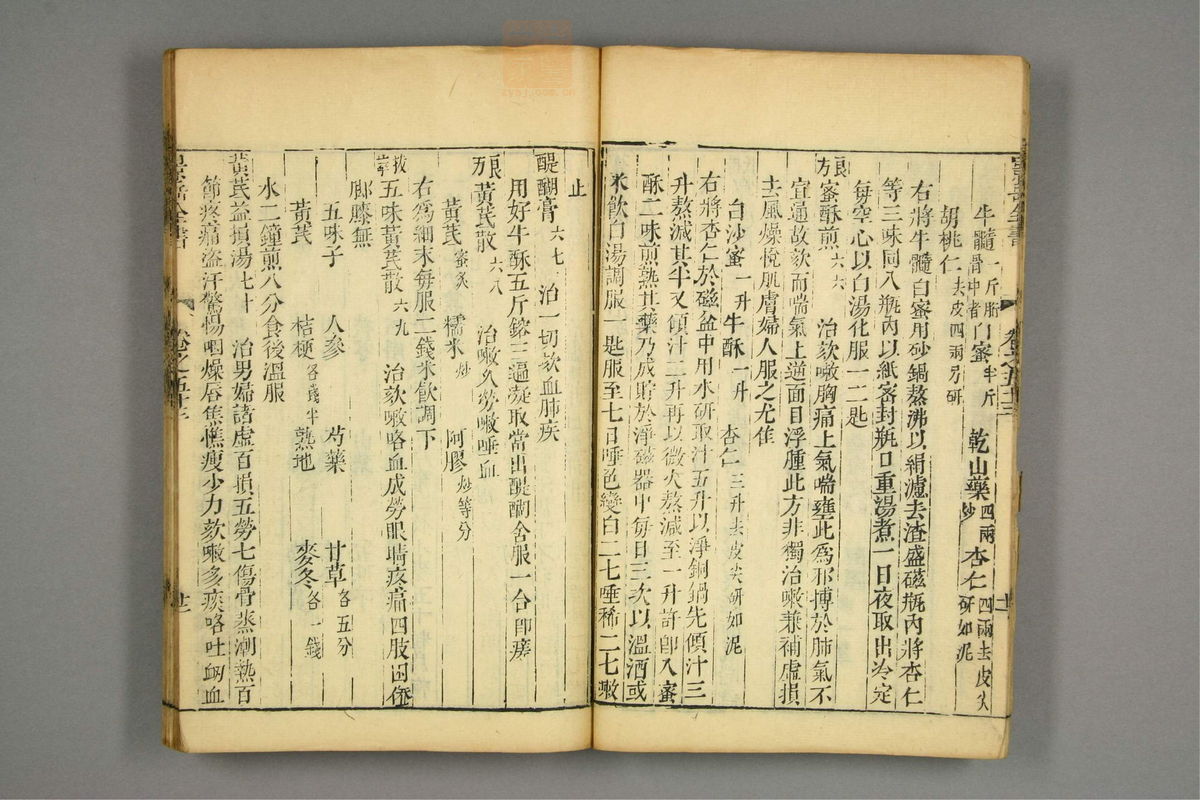 牛髓一斤骨中者 胎 白蜜半斤 乾山藥四兩炒 杏仁四兩去皮尖研如泥
胡桃仁去皮四兩另研
右將牛髓白蜜用砂鍋熬沸以絹濾去渣盛磁瓶內將杏仁
等三味同入瓶內以紙密封瓶口重湯煮一日夜取出冷定
每空心以白湯化服一二匙
良方蜜酥煎六六 治欬嗽胸痛上氣喘壅此爲邪搏於肺氣不
宜通故欬而喘氣上逆面目浮腫此方非獨治嗽兼補虛損
去風燥悅肌膚婦人服之尤佳
白沙蜜一升 牛酥一升 杏仁三升去皮尖研如泥
右將杏仁於磁盆中用水研取汁五升以淨銅鍋先傾汁三
升熬減其半又傾汁二升再以微火熬減至一升許卽入蜜
酥二味煎熟其藥乃成貯於淨磁器中每日三次以溫酒或
米飲白湯調服一匙服至七日唾色變白二七唾稀二七嗽
止
醍醐膏六七 治一切欬血肺疾
用好牛酥五斤鎔三遍凝取當出醍醐含服一合卽瘥
良方黃芪散六八 治嗽久勞嗽唾血
黃芪蜜炙 糯米炒 阿膠炒等分
右爲細末每服二錢米飲調下
拔萃五味黃芪散六九 治欬嗽咯血成勞眼睛疼痛四肢困倦
脚膝無
五味子 人參 芍藥 甘草各五分
黃芪 桔梗各錢半 熟地 麥冬各一錢
水二鐘煎八分食後溫服
黃芪益損湯七十 治男婦諸虛百損五勞七傷骨蒸潮熱百
節疼痛盜汗驚惕咽燥唇焦憔瘦少力欬嗽多痰咯吐衂血